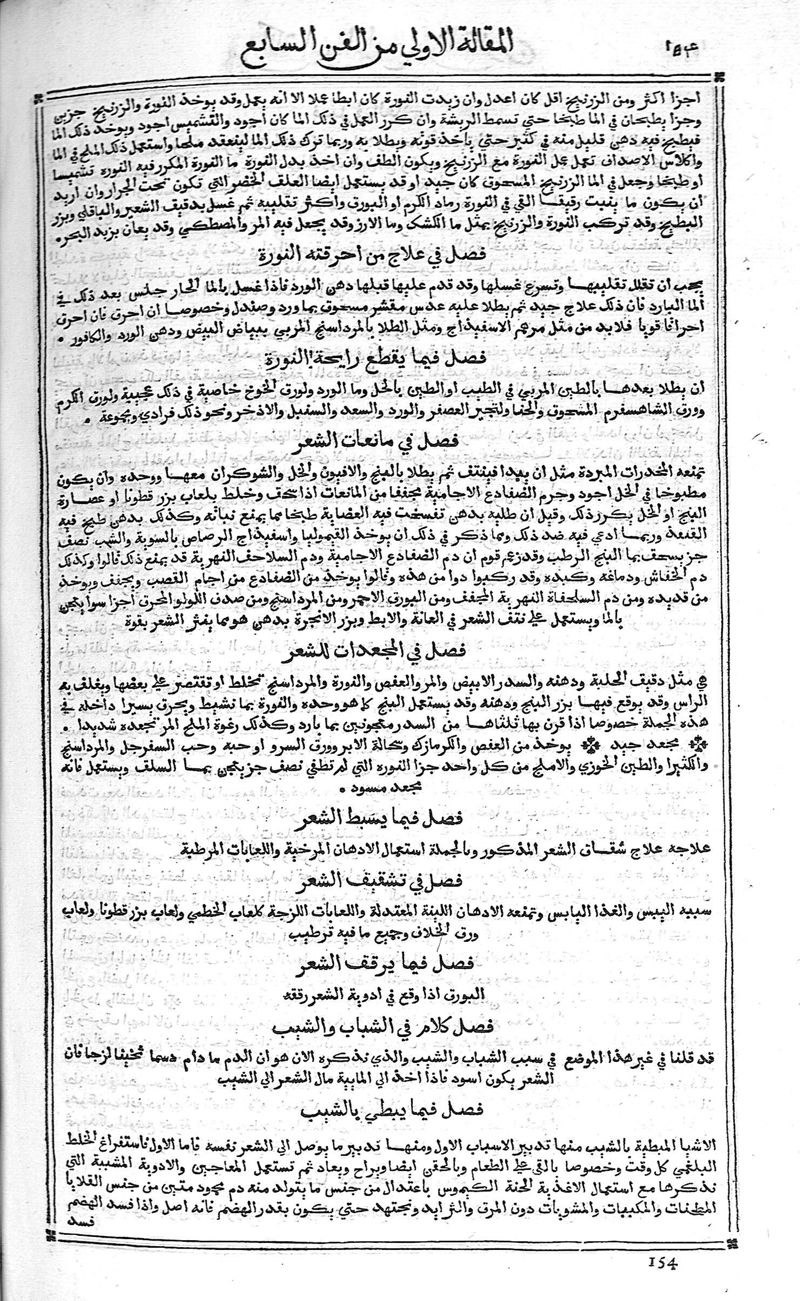 المقالة الاولي من الفن السابع
١٥٤
اجزا اكثر ومن الزرنيخ اقل كان اعدل وان زيدت النورة كان ابطا عملا الا انه يعمل وقد يوخذ النورة والزرنيخ جزين
وجزا يطبخان في الما طبخا حتي تسمط الريشة وان كرر العمل في ذلك الما كان اجود والتشميس اجود ويوخذ ذلك الما
فيطبخ فيه دهن قليل منه في كثير حتي ياخذ قوته ويطلا به وربما ترك ذلك الما لينعقد ملحا واستعمل ذلك الملح في الما
واكلاس الاصداف تعمل عمل النورة مع الزرنيخ ويكون الطف وان اخذ بدل النورة ما النورة المكرر فيه النورة تشميسا
او طبخا وجعل في الما الزرنيخ المسحوق كان جيد او قد يستعمل ايضا العلف الخضر التي تكون تحت الجرار وان اريد
ان يكون ما ينبت رقيقا القي في النورة رماد الكرم او البورق واكثر تقليبه ثم غسل بدقيف الشعير والباقلي وبزر
البطيخ وقد تركب النورة والزرنيخ بمثل ما الكشك وما الارز وقد يجعل فيه المر والمصطكي وقد يعان بزبد البحر
فصل في علاج من احرقته النورة
يجب ان تقلل تقليبها وتسرع غسلها وقد قدم عليها قبلها دهن الورد فاذا غسل بالما الحار جلس بعد ذلك في
الما البارد فان ذلك علاج جيد ثم يطلا عليه عدس مقشر مسحوق بما ورد وصندل وخصوصا ان احرق فان احرق
احراقا قويا فلا بد من مثل مرهم الاسفيذاج ومثل الطلا بالمرداسنج المربي ببياض البيض ودهن الورد والكافور
فصل فيما يقطع رايحة النورة
ان يطلا بعدها بالطين المربي في الطيب او الطين بالخل وما الورد ولورق الخوخ خاصية في ذلك عجيبة ولورق الكرم
وورق الشاهسفرم المسحوق والحنا ولثجير العصفر والورد والسعد والسنبل والاذخر ونحو ذلك فرادي ومجموعة
فصل في مانعات الشعر
تمنعه المخدرات المبردة مثل ان يبدا فينتف ثم يطلا بالبنج والافيون والخل والشوكران معها ووحده وان يكون
مطبوخا في الخل اجود وجرم الضفادع الاجامية مجففا من المانعات اذا سحف وخلط بلعاب بزر قطونا او عصارة
البنج او الخل يكرر ذلك وقيل ان طليه بدهن تفسخت فيه العضاية طبخا مما يمنع نباته وكذلك بدهن طبخ فيه
القنفد وربما ادعي فيه ضد ذلك ومما ذكر في ذلك ان يوخذ القيموليا واسفيذاج الرصاص بالسوية والشب نصف
جز يسحف بما البنج الرطب وقد زعم قوم ان دم الضفادع الاجامية ودم السلاحف النهرية قد يمنع ذلك قالوا وكذلك
دم الخفاش ودماغه وكبده وقد ركبوا دوا من هذه وقالوا يوخذ من الضفادع من اجام القصب ويجفف ويوخذ
من قديده ومن دم السلحفاة النهرية المجفف ومن البورق الاحمر ومن المرداسنج ومن صدف اللولو المحرق اجزا سوا يعجن
بالما ويستعمل علي نتف الشعر في العانة والابط وبزر الانجرة بدهن هو مما ينثر الشعر بقوة
فصل في المجعدات للشعر
هي مثل دقيف الحلبة ودهنه والسدر الابيض والمر والعفص والنورة والمرداسنج تخلط او تقتصر علي بعضها ويغلف به
الراس وقد يوقع فيها بزر البنج ودهنه وقد يستعمل البنج كما هو وحده والنورة بما نشيط ويحرق يسيرا داخله في
هذه الجملة خصوصا اذا قرن بها ثلثاها من السدر معجونين بما بارد وكذلك رغوة الملح المر تجعده شديدا
مجعد جيد يوخذ من العفص والكرمازك وحكالة الابر وورق السرو او حبه وحب السفرجل والمرداسنج
والكثيرا والطين الخوزي والاملج من كل واحد جزا النورة التي لم تطفي نصف جز يعجن بما السلف ويستعمل فانه
مجعد مسود
فصل فيما يسبط الشعر
علاجه علاج شقاف الشعر المذكور وبالجملة استعمال الادهان المرخية واللعابات المرطبة
فصل في تشقيف الشعر
سببه اليبس والغذا اليابس وتمنعه الادهان اللينة المعتدلة واللعابات اللزجة كلعاب الخطمي ولعاب بزر قطونا ولعاب
ورق الخلاف وجميع ما فيه ترطيب
فصل فيما يرقف الشعر
البورق اذا وقع في ادوية الشعر رققه
فصل كلام في الشباب والشيب
قد قلنا في غير هذا الموضع في سبب الشباب والشيب والذي نذكره الان هو ان الدم ما دام دسما ثخينا لزجا فان
الشعر يكون اسود فاذا اخذ الي المايية مال الشعر الي الشيب
فصل فيما يبطي بالشيب
الاشيا المبطية بالشيب منها تدبير الاسباب الاول ومنها تدبير ما يوصل الي الشعر نفسه فاما الاول فاستفراغ الخلط
البلغمي كل وقت وخصوصا بالقي علي الطعام وبالحقن ايضا ويراح ويعاد ثم تستعمل المعاجين والادوية المشببة التي
نذكرها مع استعمال الاغذية الحسنة الكيموس باعتدال من جنس ما يتولد منه دم محمود متين من جنس القلايا
المطجنات والمكببات والمشويات دون المرق والثرايد ونجتهد حتي يكون بقدر الهضم فانه اصل واذا فسد الهضم
فسد
154